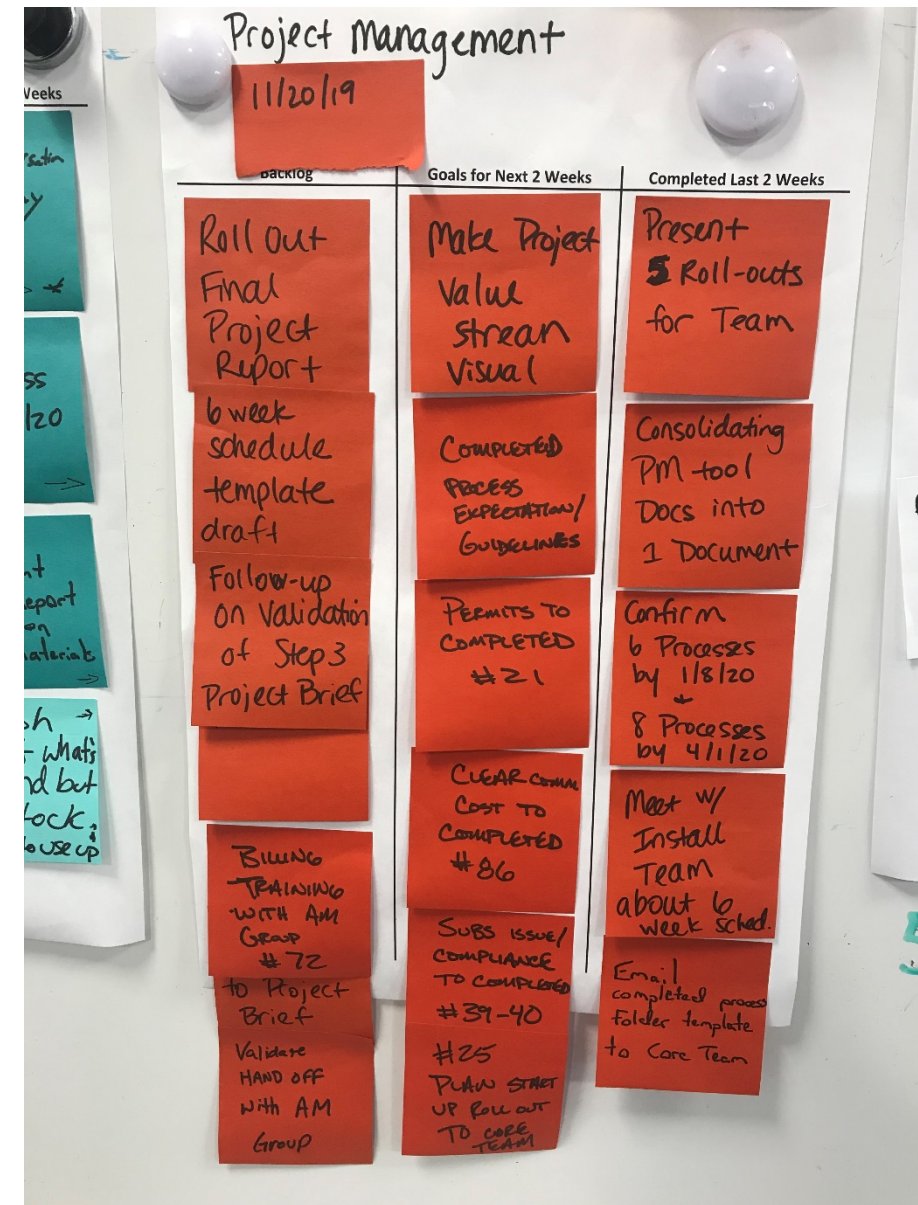 Project Management
11/20/19
Backlog
Roll Out
Final
Project
Report
6 week
schedule
template
draft
Follow-up
on Validation
of Step 3
Project Brief
BILLING
TRAINING
WITH AM
GROUP
#72
to Project
Brief
Validate
HAND OFF
With AM
Group
Goals for Next 2 Weeks
Make Project
Value
strean
Visual
COMPLETED
PROCESS
EXPECTATION/
GUIDELINES
PERMITS TO
COMPLETED
#21
CLEAR COMM
COST TO
COMPLETED
#86
SUBS ISSUE/
COMPLIANCE
TO COMPLETED
#39-40
#25
PLAN START
UP ROLL OUT
TO CORE
TEAM
Completed Last 2 Weeks
Present
5 Roll-outs
for Team
Consolidating
PM tool
Docs into
1 Document
Confirm
6 Processes
by 1/8/20
+
8 Processes
by 4/1/20
Meet w/
Install
Team
about 6
week sched.
Email
completed process
folder template
to Core Team
Weeks
/20
eport
on
aterials
what's
nd but
ock,
use up